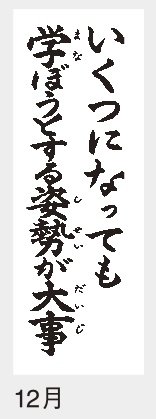 いくつになっても
学ぼうとする姿勢が大事
まな
しせい
だいじ
12月